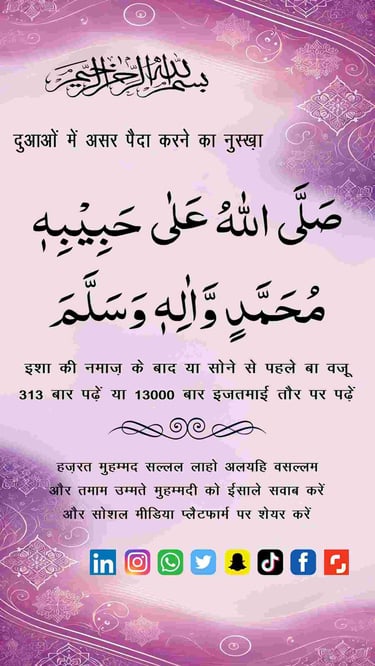 بسم الله الرحمن الرحيم
दुआओं में असर पैदा करने का नुस्ख़ा
صَلَّى اللهُ عَلٰى حَبِيْبِهٖ
مُحَمَّدٍ وَّاٰلِهٖ وَسَلَّمَ
इशा की नमाज़ के बाद या सोने से पहले बा वजू
313 बार पढ़ें या 13000 बार इजतमाई तौर पर पढ़ें
हज़रत मुहम्मद सल्लल लाहो अलयहि वसल्लम
और तमाम उम्मते मुहम्मदी को ईसाले सवाब करें
और सोशल मीडिया प्लैटफार्म पर शेयर करें